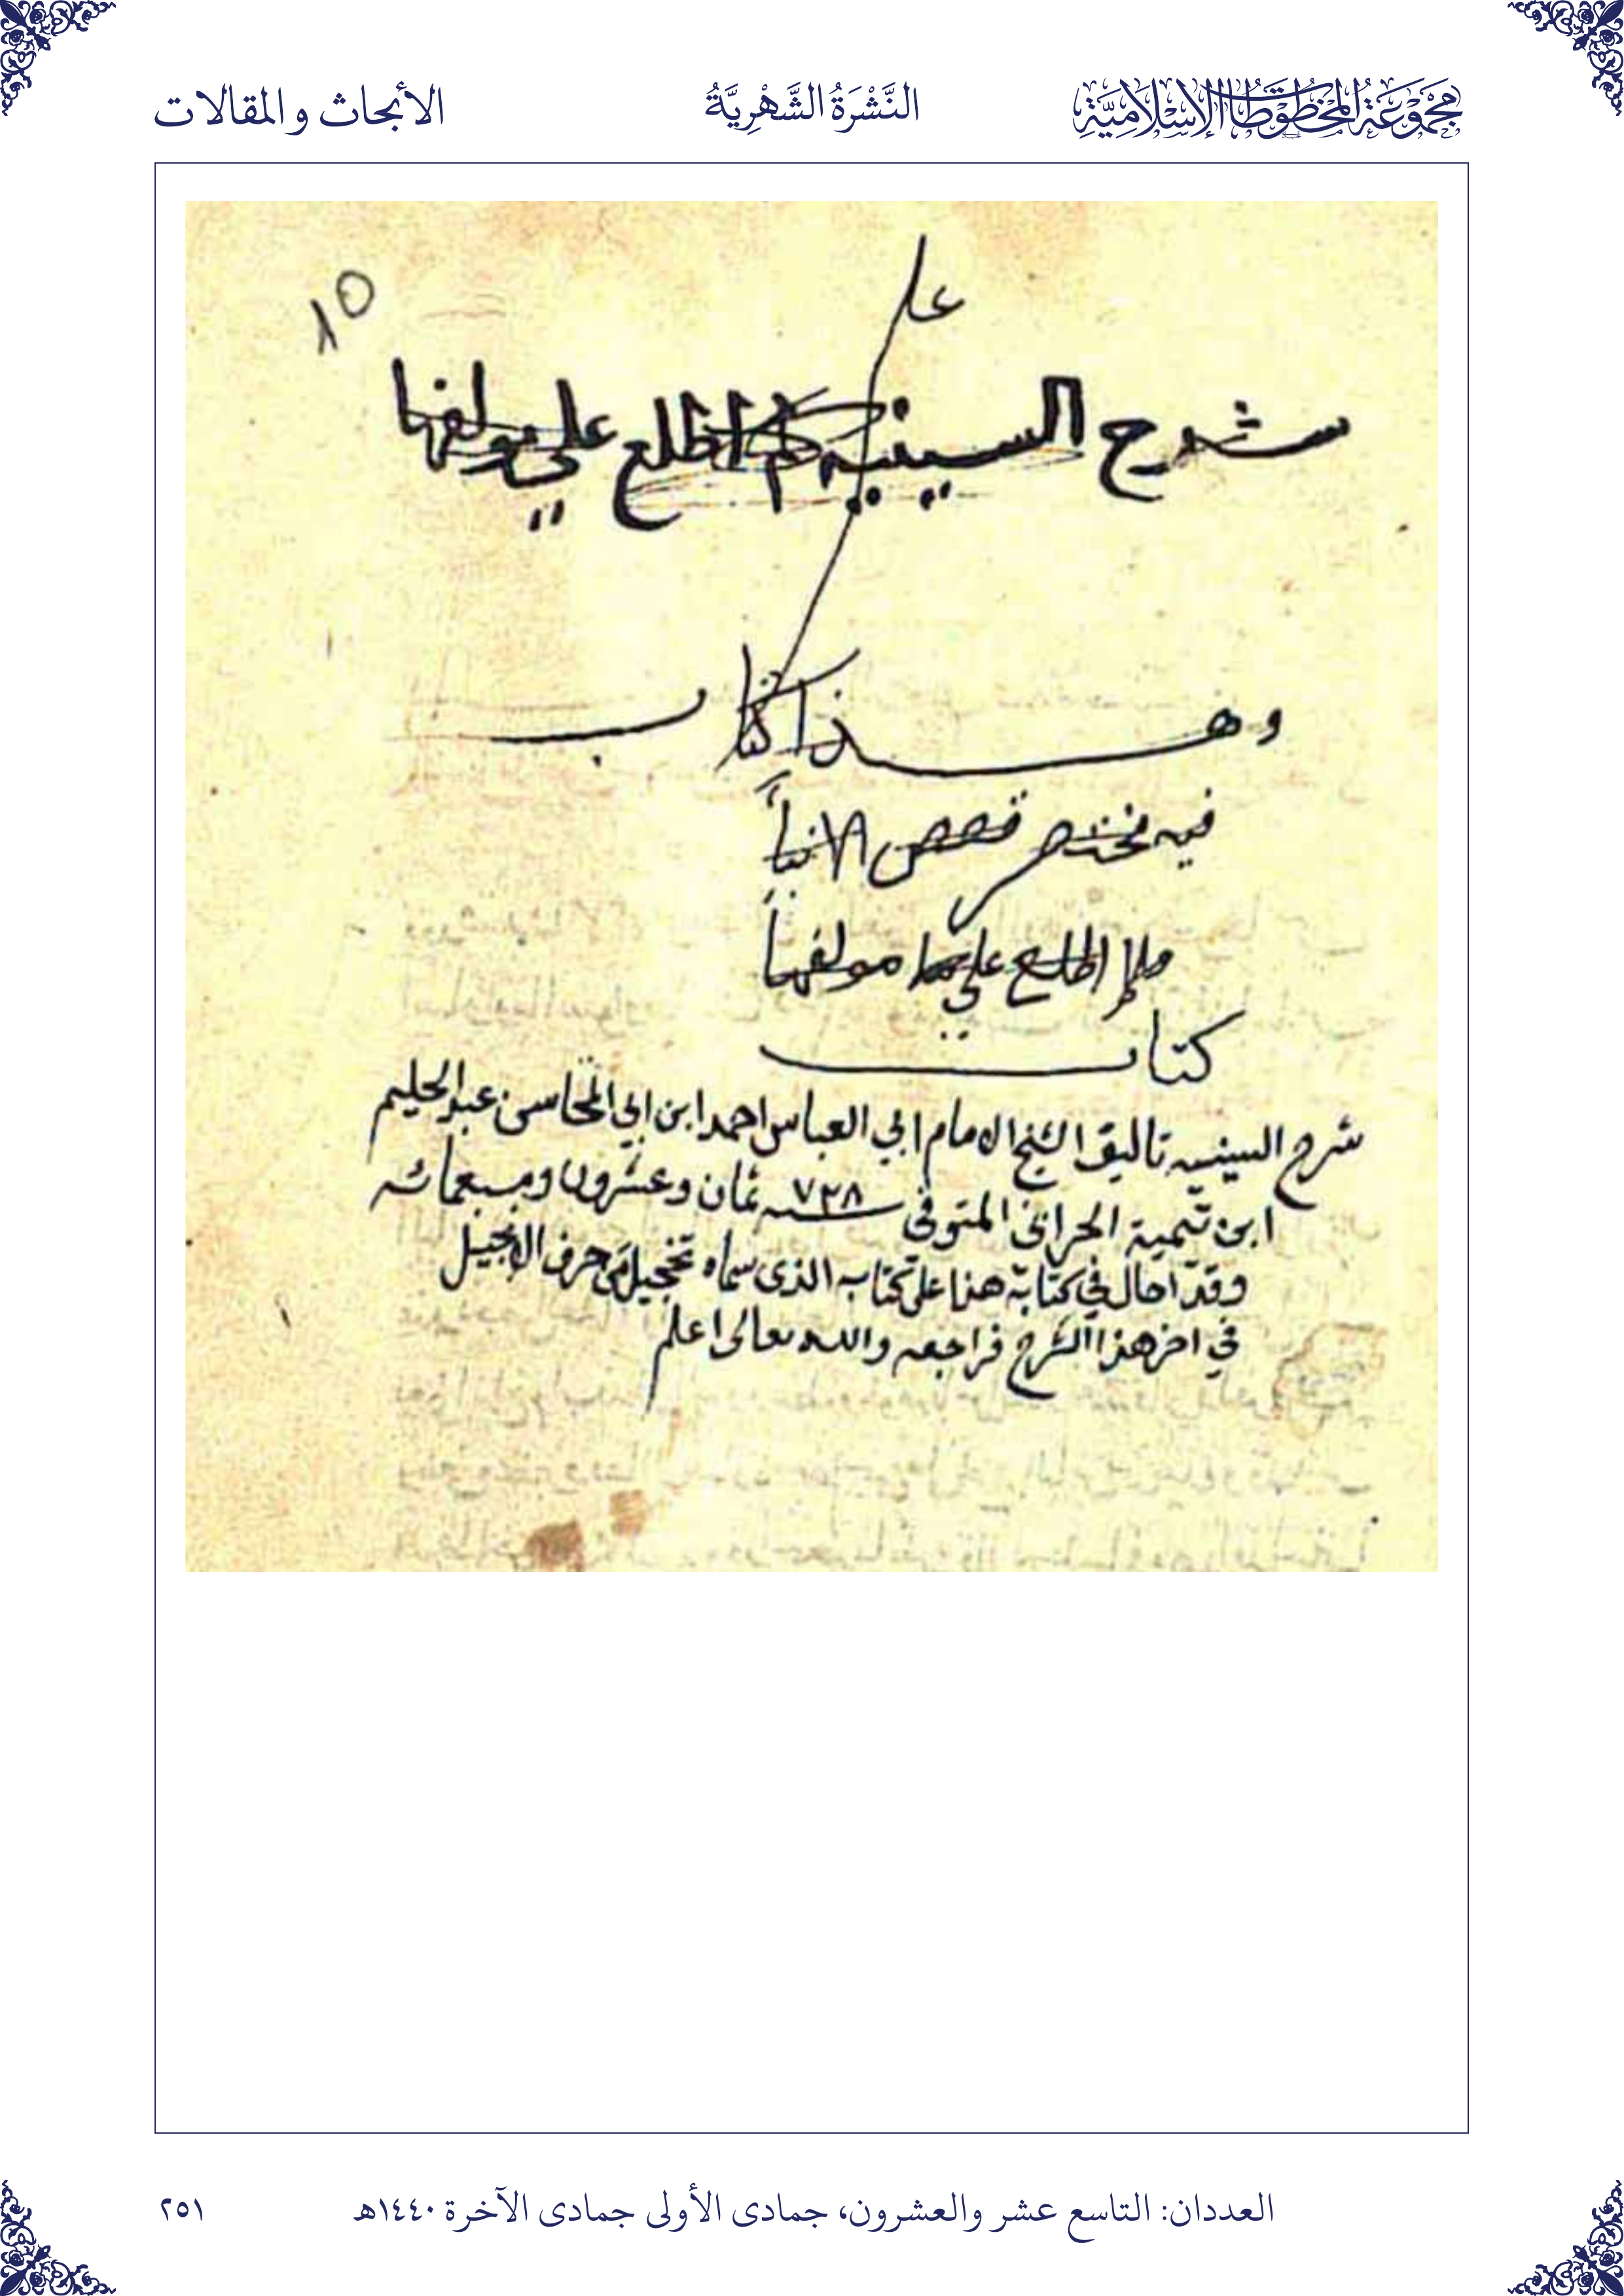 مجموعة المخطوطات الإسلامية
النَّشْرَةُ الشَّهْرِيَّةُ
الأبحاث والمقالات
١٥
على
شرح السينيه لم اطلع علي مولفها
وهذا كتاب
فيه مختصر قصص الانبيأ
ولم اطلع علي مولفها
كتاب
شرح السينيه تاليف الشيخ الامام ابي العباس احمد ابن ابي المحاسن عبد الحليم
ابن تيمية الحراني المتوفى سنه ٧٢٨ ثمان وعشرون وسبعمائه
وقد احال في كتابه هذا على كتابه الذى سماه تخجيل من حرف الانجيل
في اخر هذا الشرح فراجعه والله تعالى اعلم
العددان: التاسع عشر والعشرون، جمادى الأولى جمادى الآخرة ١٤٤٠هـ
٢٥١